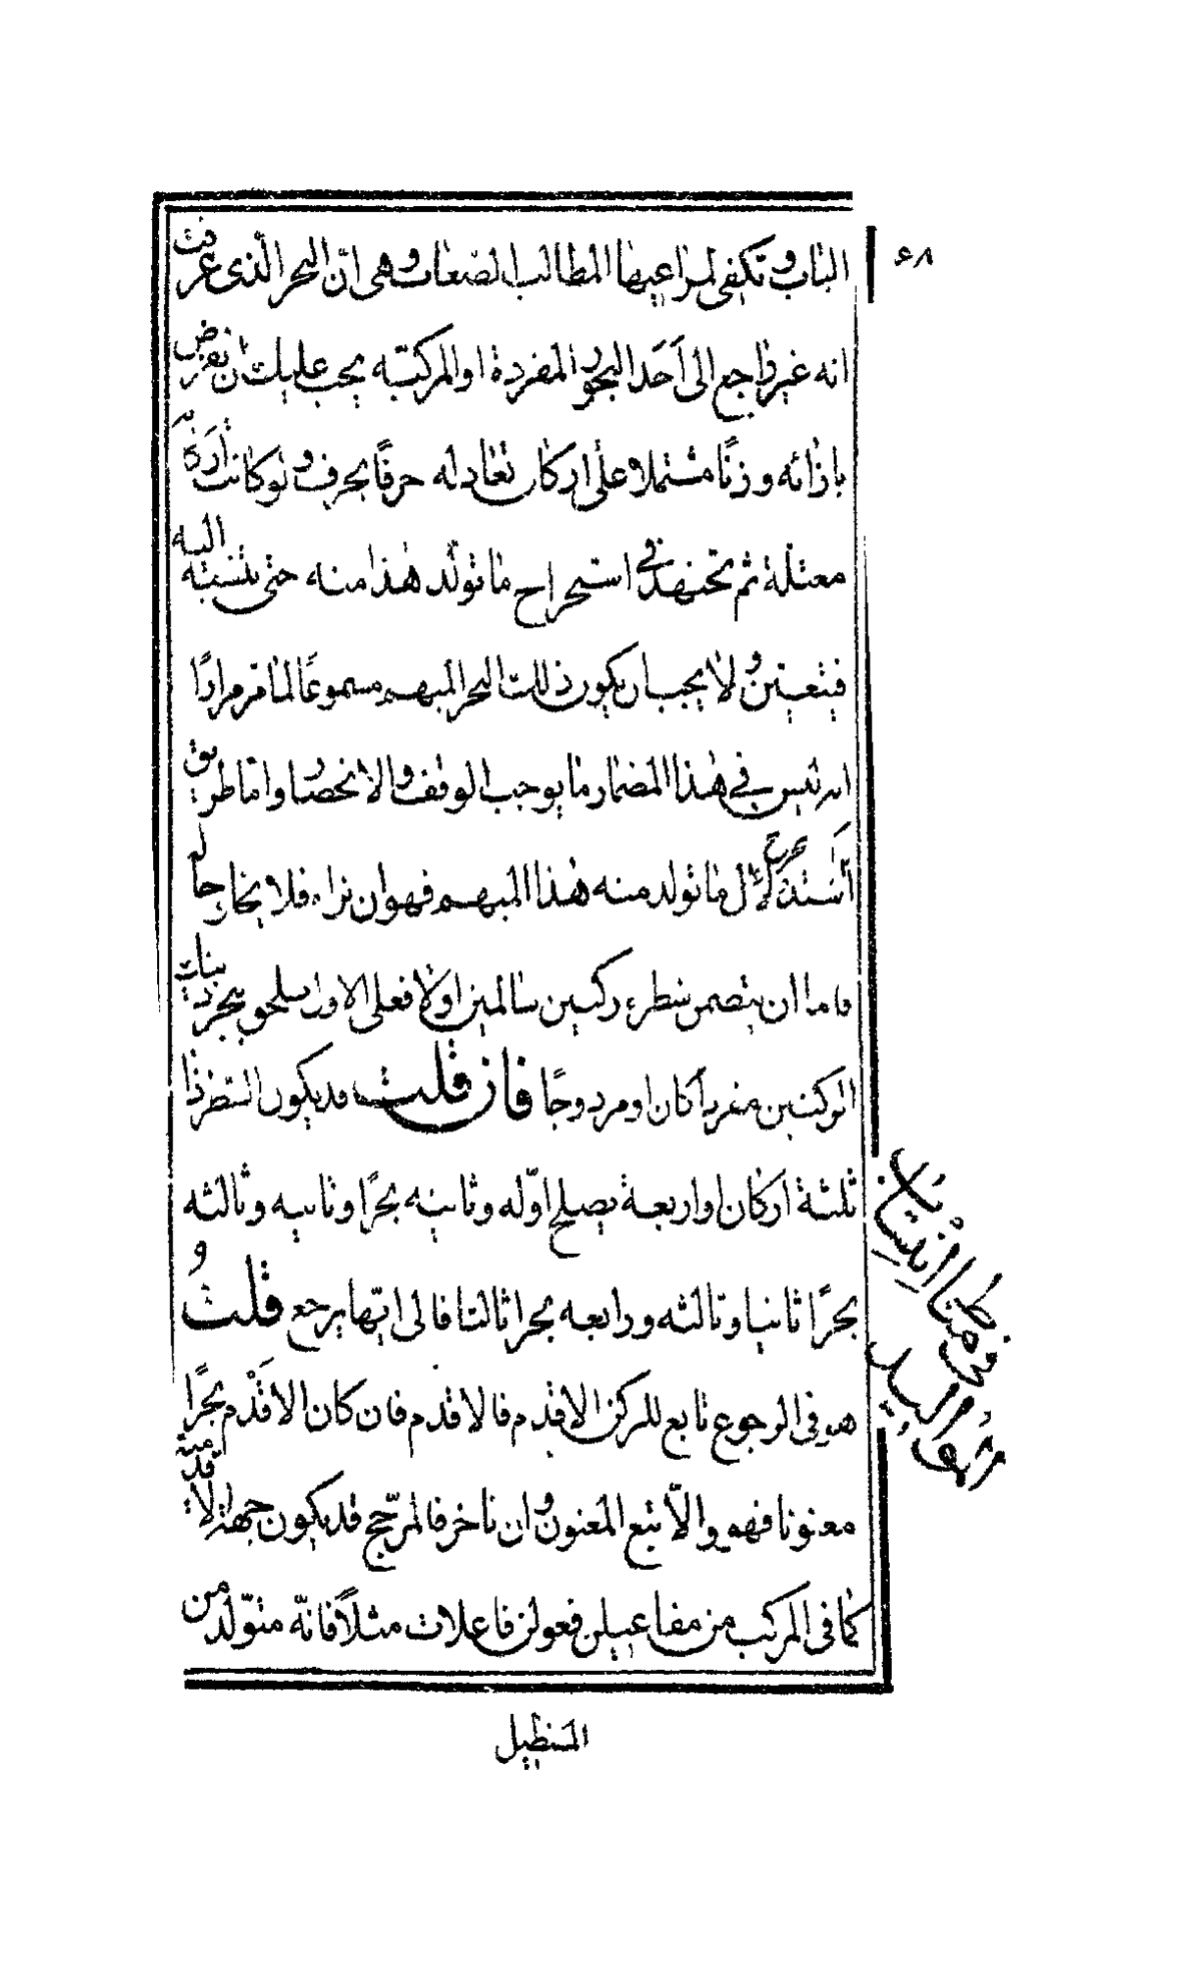 ٦٨
الباب وتكفى لمراعيها المطالب الصعاب وهى انّ البحر الّذى عرفت
انه غير راجع الى أحد البحور المفردة او المركبة يجب عليك ان تفرض
بازائه وزنًا مشتملا على اركان تعادله حرفًا بحرف ولو كانت اركانه
معتلة ثم تجتهد فى استخراج ما تولّد هذا منه حتى تنسبه اليه
فيتعين ولا يجب ان يكون ذلك البحر المبهم مسموعًا لما مر مرارًا
انه ليس فى هذا المضمار ما يوجب الوقف والانحصار واما طريق
استخراج ما تولد منه هذا المبهم فهو ان تراه فلا يخلو حاله
فاما ان يتضمن شطره ركنين سالمين اولا فعلى الاول يلحق ببحر ذينك
الركنين مفردا كان او مزدوجًا فان قلت قد يكون الشطر ذا
ثلثة اركان او اربعة يصلح اوّله وثانيه بحرًا وثانيه وثالثه
بحرًا ثانيا وثالثه ورابعه بحرا ثالثا فالى ايّها يرجع قلتُ
هو فى الرجوع تابع للركن الاقدم فالاقدم فان كان الاقدم بحرًا
معنونا فهو والّا تبع المعنون وان تاخر فالمرجّح قد يكون جهة الاقدمية
كما فى المركب من مفاعيلن فعولن فاعلات مثلاً فانّه متولّد من
المستطيل
فى مناط انتساب
المواليد